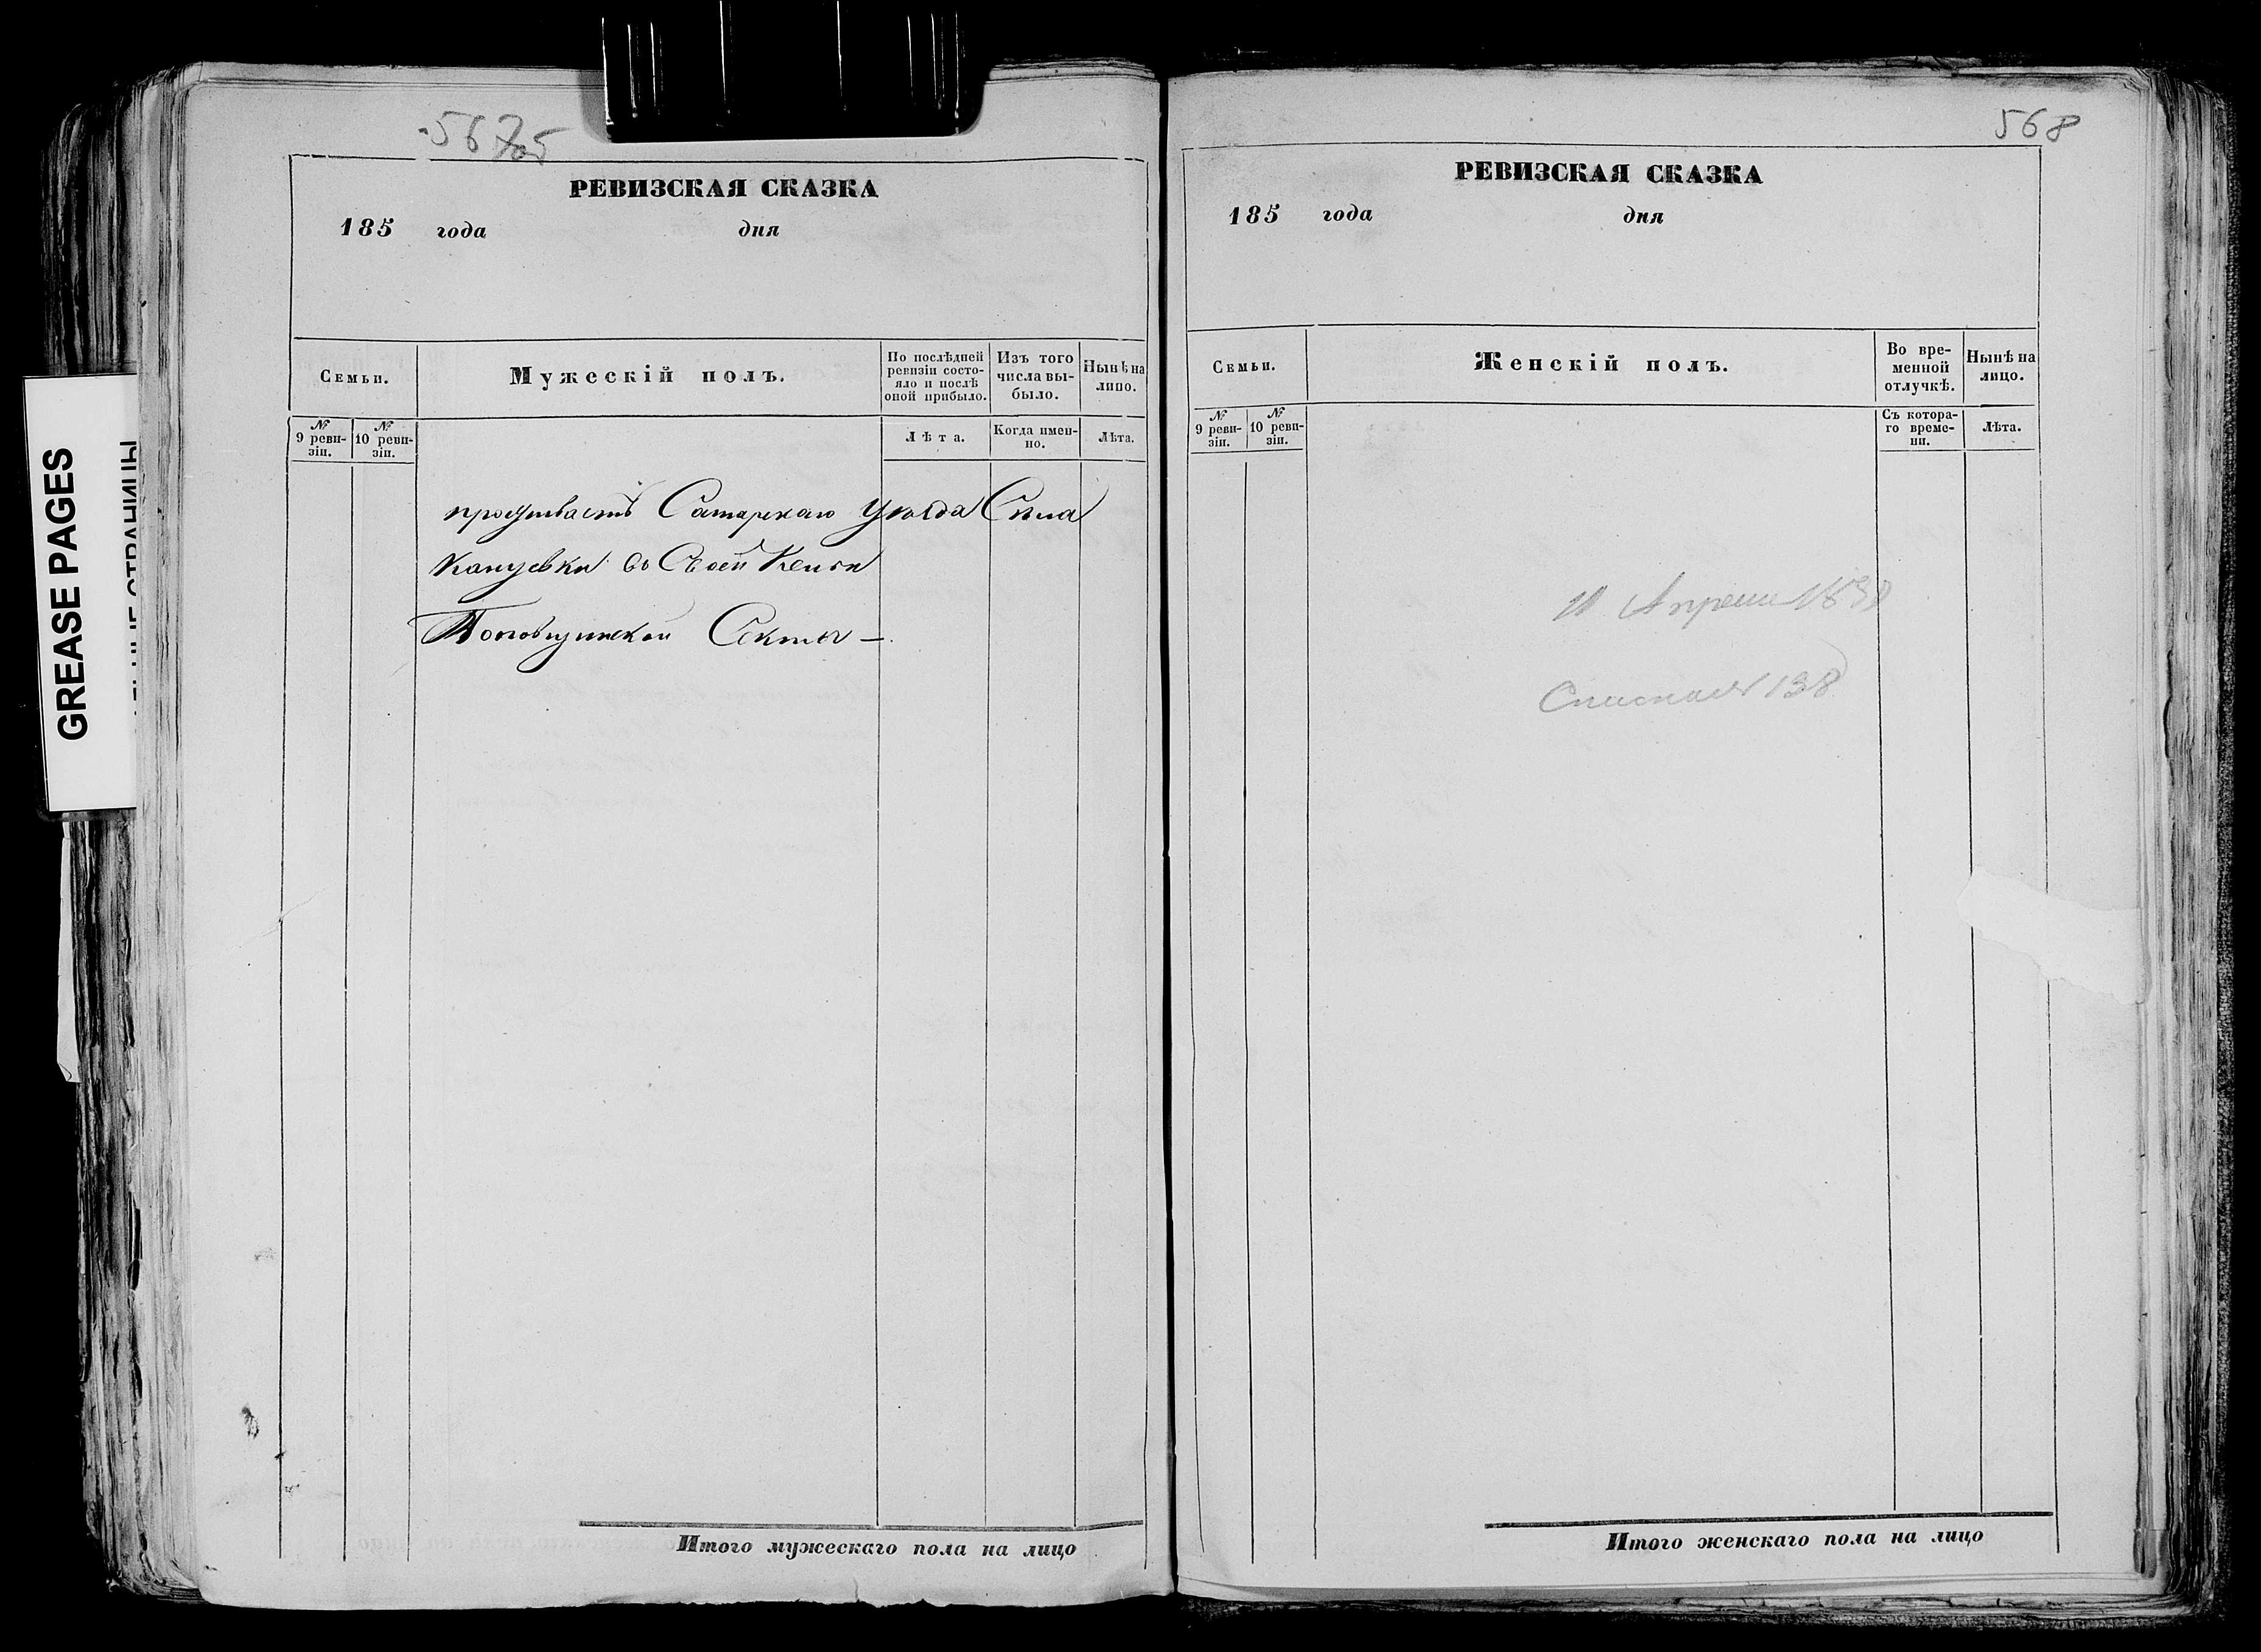 567об
РЕВИЗСКАЯ СКАЗКА
185 года дня
Семьи.
Мужескій полъ.
По послѣдней ревизіи состо-
яло и послѣ
оной прибыло.
Изъ того
числа вы-
было.
Нынѣ на
лицо.
№
9 реви-
зіи.
№
10 реви-
зіи.
Лѣта.
Когда имен-
но.
Лѣта.
проживаетъ Самарскаго Уѣзда Села
Кануевки въ Своей Кельи
Поповщинской Секты —
Итого мужескаго пола на лицо
568
РЕВИЗСКАЯ СКАЗКА
185 года дня
Семьи.
Женскій полъ.
Во вре-
менной
отлучкѣ.
Нынѣ на
лицо.
№
9 реви-
зіи.
№
10 реви-
зіи.
Съ котора-
го време-
ни.
Лѣта.
Апреля
138
Итого женскаго пола на лицо
GREASE PAGES